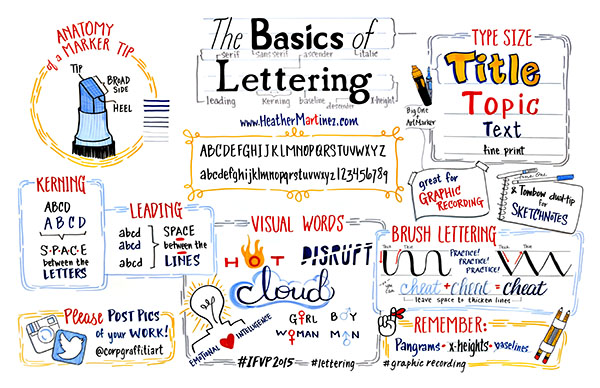 ANATOMY
of a MARKER TIP
TIP
BROAD
SIDE
HEEL
The Basics of
serif sans serif ascender italic
Lettering
leading Kerning baseline descender x-height
www.HeatherMartinez.com
ABCDEFGHIJKLMNOPQRSTUVWXYZ
abcdefghijklmnopqrstuvwxyz123456789
TYPE SIZE
Title
Topic
Text
fine print
Big One +
ArtMarker
great for
GRAPHIC
RECORDING
& Tombow dual-tip
for
SKETCHNOTES
KERNING
ABCD
A B C D
S·P·A·C·E
between the
LETTERS
LEADING
abcd
abcd
abcd
SPACE
between the
LINES
VISUAL WORDS
HOT
DISRUPT
cloud
GIRL BOY
WOMAN MAN
EMOTIONAL INTELLIGENCE
#IFVP2015 #lettering #graphic recording
BRUSH LETTERING
Thick Thin
PRACTICE!
PRACTICE!
PRACTICE!
Thick Thin
cheat + cheat = cheat
leave space to thicken lines
Please POST PICS
of your WORK!
@corpgraffitiart
REMEMBER:
Pangrams · x-heights · baselines